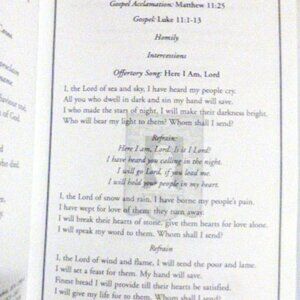 Gospel Acclamation: Matthew 11:25
Gospel: Luke 11:1-13
Homily
Intercessions
Offertory Song: Here I Am, Lord
I, the Lord of sea and sky, I have heard my people cry.
All you who dwell in dark and sin my hand will save.
I who made the stars of night, I will make their darkness bright.
Who will bear my light to them? Whom shall I send?
Refrain:
Here I am, Lord. Is it I Lord?
I have heard you calling in the night.
I will go Lord, if you lead me.
I will hold your people in my heart.
I, the Lord of snow and rain, I have borne my people's pain.
I have wept for love of them; they turn away.
I will break their hearts of stone, give them hearts for love alone.
I will speak my word to them. Whom shall I send?
Refrain
I, the Lord of wind and flame, I will send the poor and lame.
I will set a feast for them. My hand will save.
Finest bread I will provide till their hearts be satisfied.
I will give my life for to them. Whom shall I send?
of God.